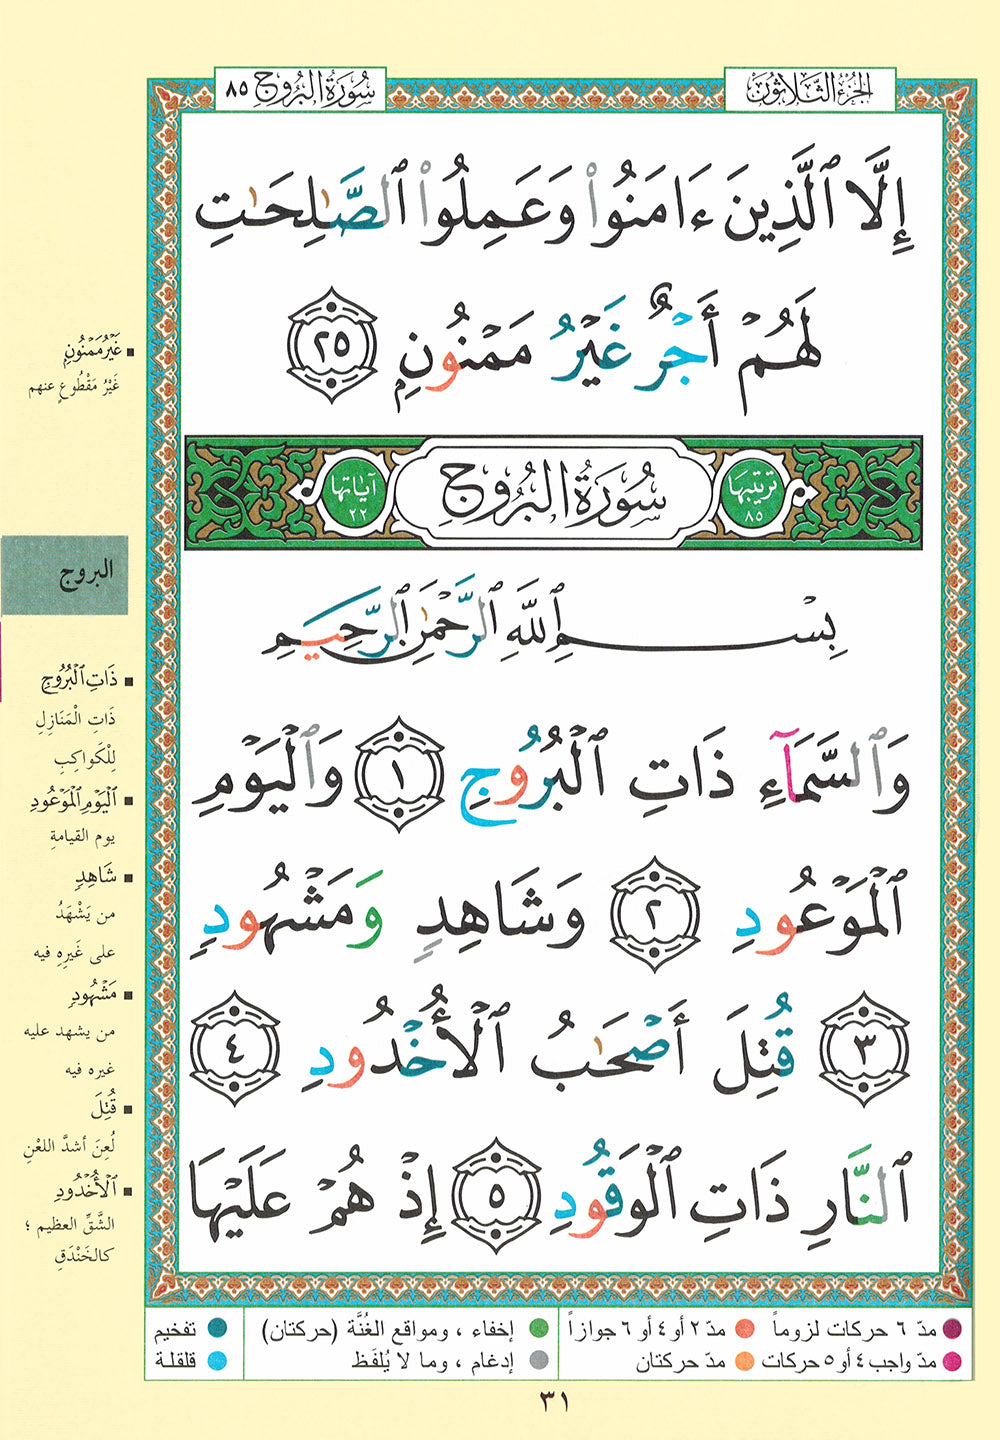 الجزء الثلاثون
سورة البروج ٨٥
إِلَّا ٱلَّذِينَ ءَامَنُوا۟ وَعَمِلُوا۟ ٱلصَّٰلِحَٰتِ
لَهُمْ أَجْرٌ غَيْرُ مَمْنُونٍۭ ٢٥
ترتيبها ٨٥
سُورَةُ البُرُوجِ
آياتها ٢٢
بِسْمِ ٱللَّهِ ٱلرَّحْمَٰنِ ٱلرَّحِيمِ
وَٱلسَّمَآءِ ذَاتِ ٱلْبُرُوجِ ١ وَٱلْيَوْمِ
ٱلْمَوْعُودِ ٢ وَشَاهِدٍ وَمَشْهُودٍ
٣ قُتِلَ أَصْحَٰبُ ٱلْأُخْدُودِ ٤
ٱلنَّارِ ذَاتِ ٱلْوَقُودِ ٥ إِذْ هُمْ عَلَيْهَا
غَيْرُ مَمْنُونٍۭ
غَيْرُ مَقْطُوعٍ عنهم
البروج
ذَاتِ ٱلْبُرُوجِ
ذَاتِ الْمَنَازِلِ
لِلْكَواكِبِ
ٱلْيَوْمِ ٱلْمَوْعُودِ
يوم القيامةِ
شَاهِدٍ
من يَشْهَدُ
على غَيرِهِ فيه
مَشْهُودٍ
من يشهد عليه
غيره فيه
قُتِلَ
لُعِنَ أشدَّ اللعْنِ
ٱلْأُخْدُودِ
الشَّقِّ العظيم ؛
كالخَنْدَقِ
مدّ ٦ حركات لزوماً
مدّ ٢ أو ٤ أو ٦ جوازاً
إخفاء ، ومواقع الغُنَّة (حركتان)
تفخيم
مدّ واجب ٤ أو ٥ حركات
مدّ حركتان
إدغام ، وما لا يُلفَظ
قلقلة
٣١